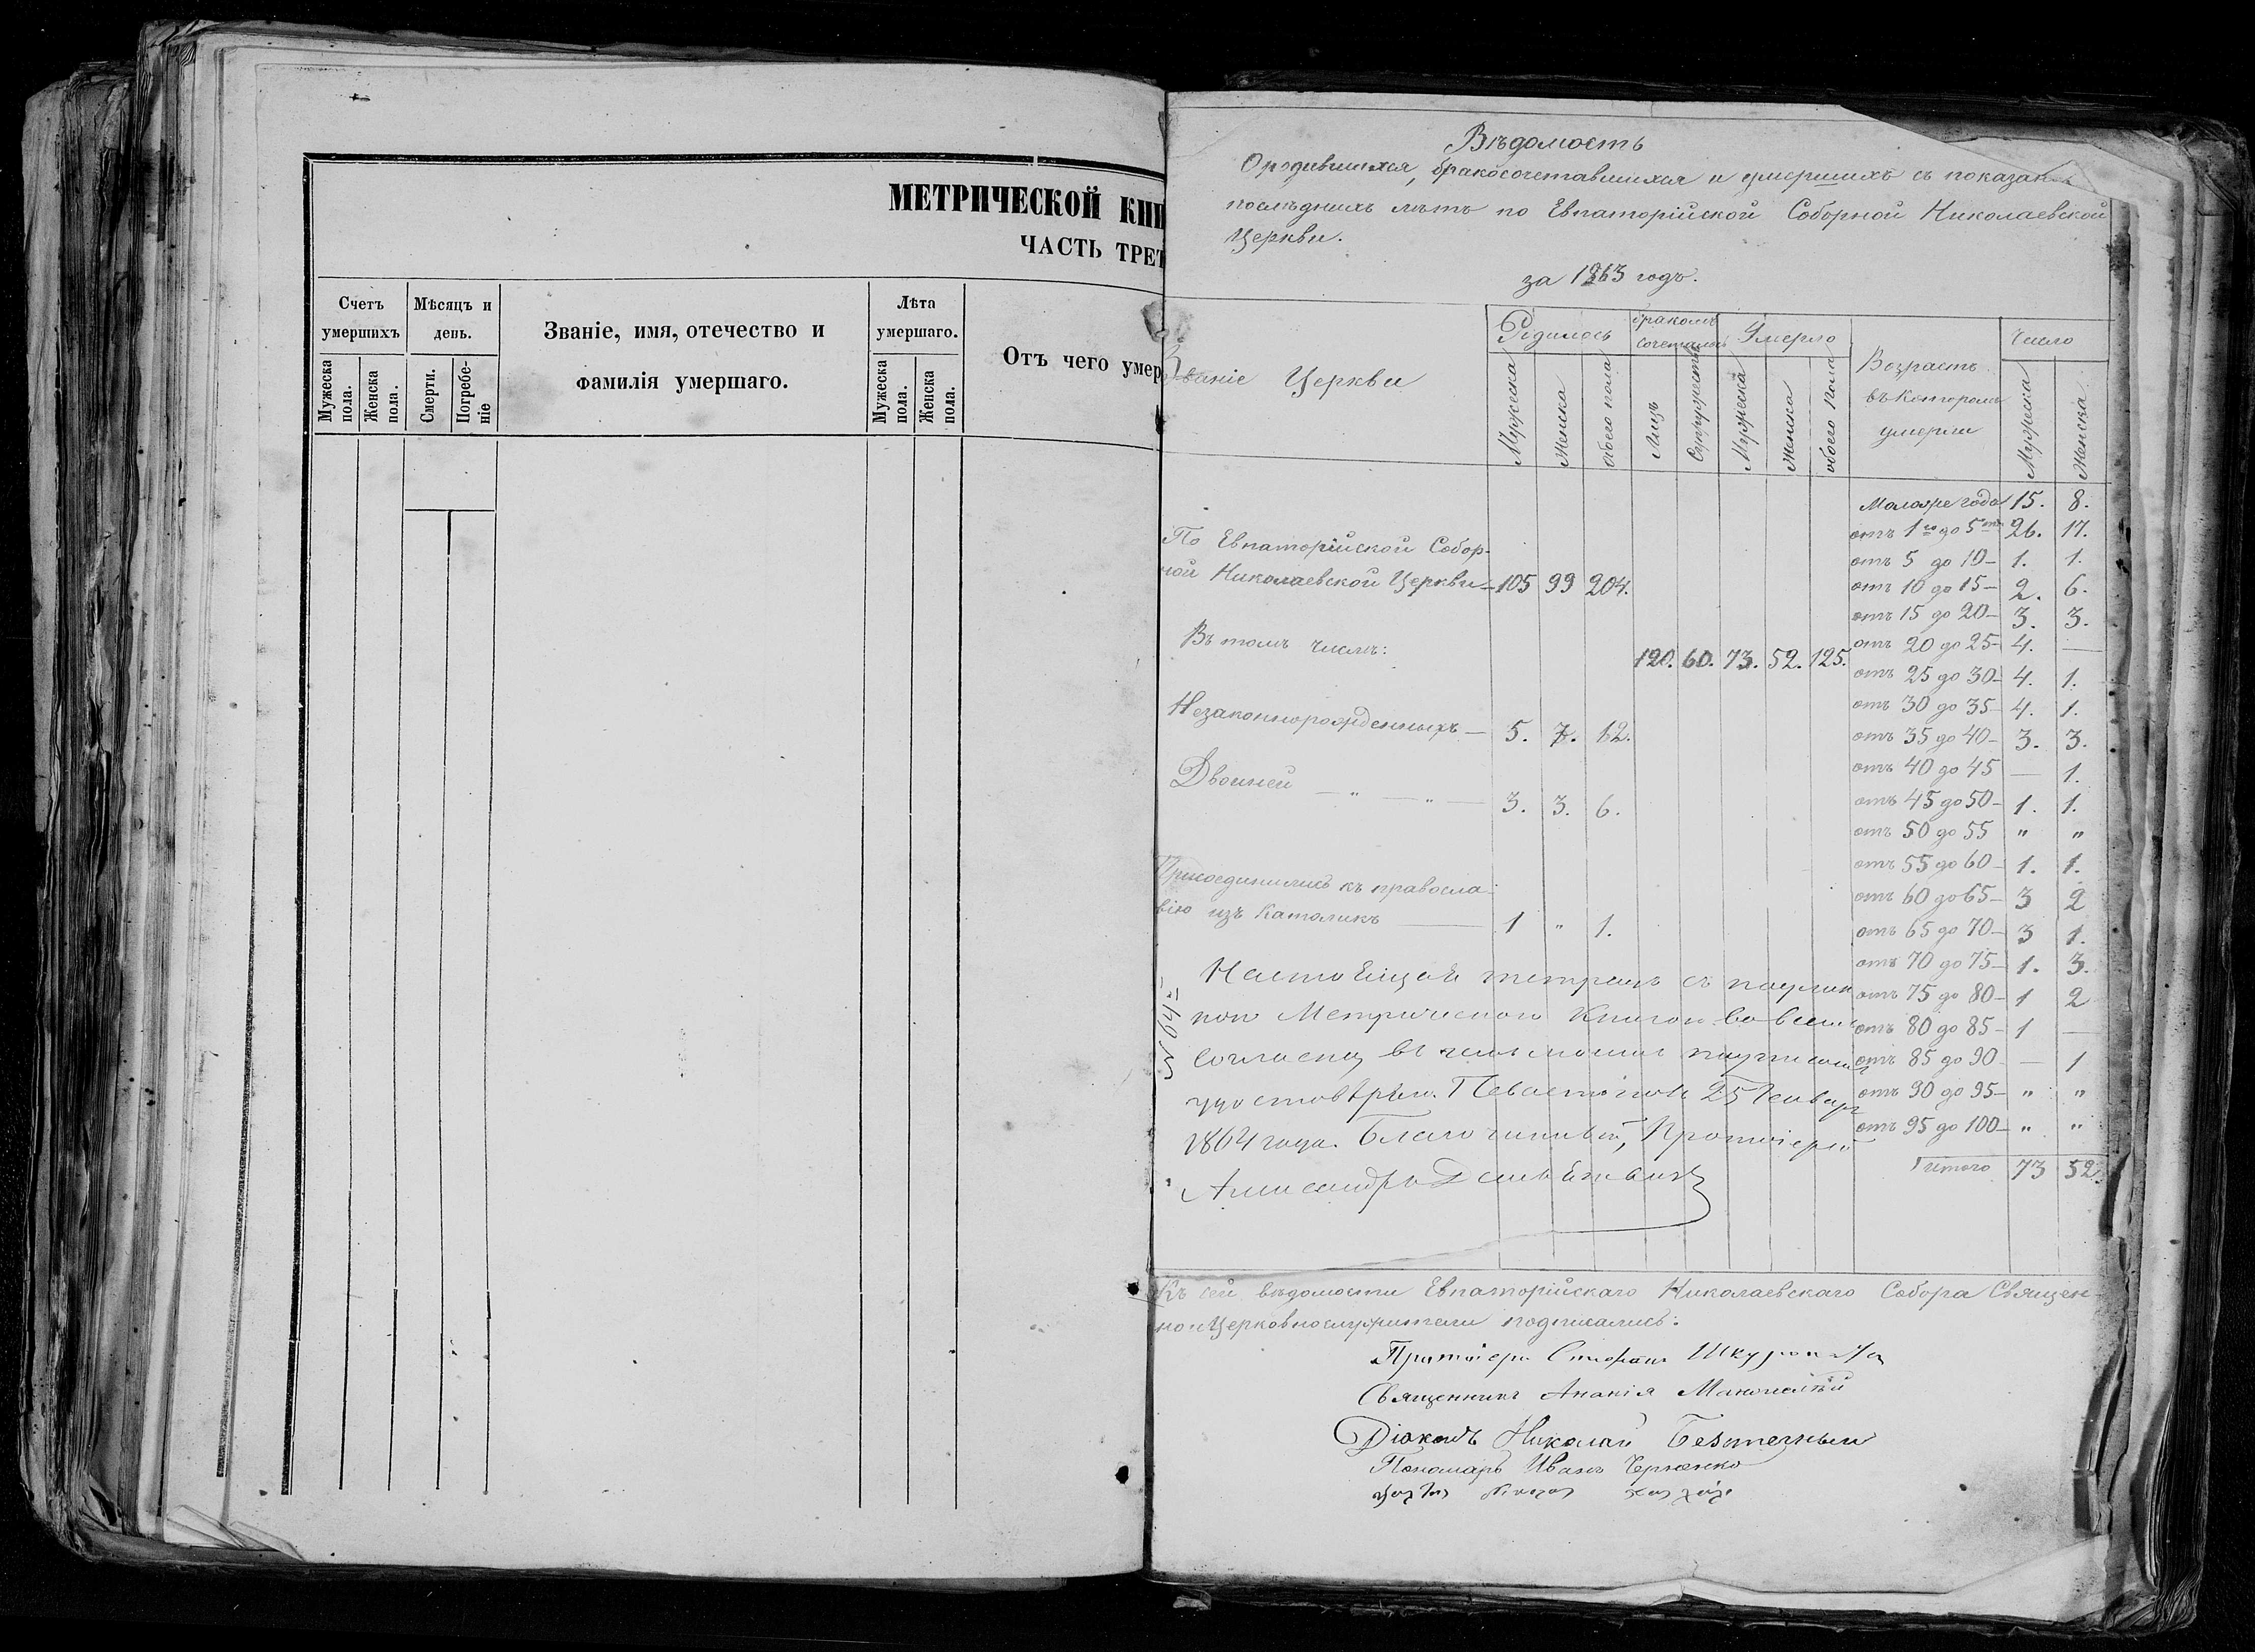 МЕТРИЧЕСКОЙ КНИ
ЧАСТЬ ТРЕТ
Счетъ умершихъ
Мѣсяцъ и день.
Званіе, имя, отечество и фамилія умершаго.
Лѣта умершаго.
Отъ чего умер
Мужеска пола.
Женска пола.
Смерти.
Погребе-ніе
Мужеска пола.
Женска пола.
Вѣдомость
О родившихся, бракосочетавшихся и умершихъ съ показан
послѣднихъ лѣтъ по Евпаторійской Соборной Николаевской
Церкви.
за 1863 годъ.
Званіе Церкви
Родилось
бракомъ сочеталось
Умерло
Возрастъ въ которомъ умерли
Число
Мужеска
Женска
обоего пола
Лицъ
Супружествъ
Мужеска
Женска
обоего пола
Мужеска
Женска
По Евпаторійской Собор-
ной Николаевской Церкви 105 99 204.
Въ томъ числѣ:
120. 60. 73. 52. 125.
Незаконнорожденныхъ — 5. 7. 12.
Двойней — „ — „ — 3. 3. 6.
Присоединились къ правосла-
вію изъ Католикъ — 1 „ 1.
Моложе года 15. 8.
отъ 1го до 5ти 26. 17.
отъ 5 до 10 — 1. 1.
отъ 10 до 15 — 2. 6.
отъ 15 до 20 — 3. 3.
отъ 20 до 25 — 4. —
отъ 25 до 30 — 4. 1.
отъ 30 до 35 — 4. 1.
отъ 35 до 40 — 3. 3.
отъ 40 до 45 — 1.
отъ 45 до 50 — 1. 1.
отъ 50 до 55 „ „
отъ 55 до 60 — 1. 1.
отъ 60 до 65 — 3 2
отъ 65 до 70 — 3 1.
отъ 70 до 75 — 1. 3.
отъ 75 до 80 — 1 2
отъ 80 до 85 — 1 —
отъ 85 до 90 — 1
отъ 90 до 95 — „ „
отъ 95 до 100 — „ „
Итого 73 52.
№ 64
тетрадь съ подлин
ною Метрическою Книгою во всемъ
согласна въ чемъ
25 Января
1864 года. Благочинный, Протоіерей
Александръ
Къ сей вѣдомости Евпаторійскаго Николаевскаго Собора Священ-
но и Церковнослужители подписались:
Протоіерей Стефанъ
Священникъ Ананія
Діаконъ Николай
Пономарь Иванъ